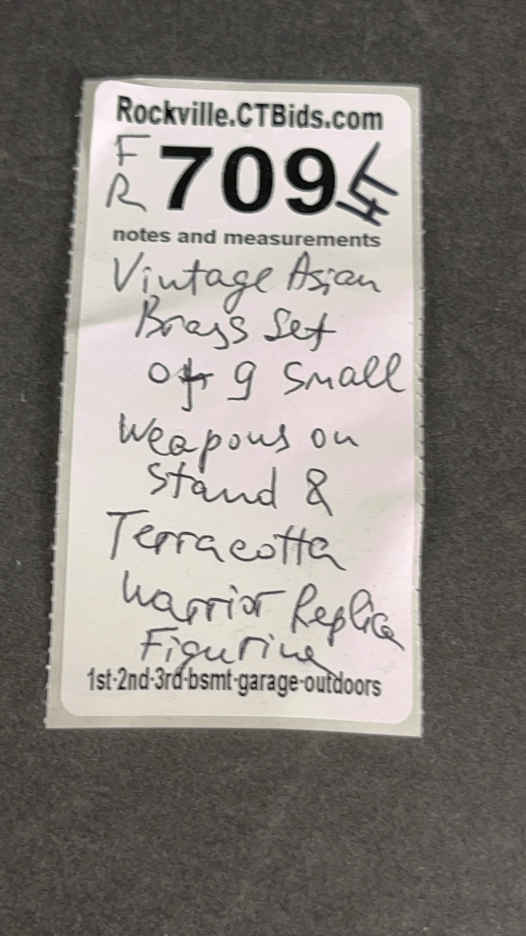 Rockville.CTBids.com
F R 709 HT
notes and measurements
Vintage Asian
Brass Set
of 9 Small
Weapons on
Stand &
Terracotta
Warrior Replica
Figurine
1st-2nd-3rd-bsmt-garage-outdoors